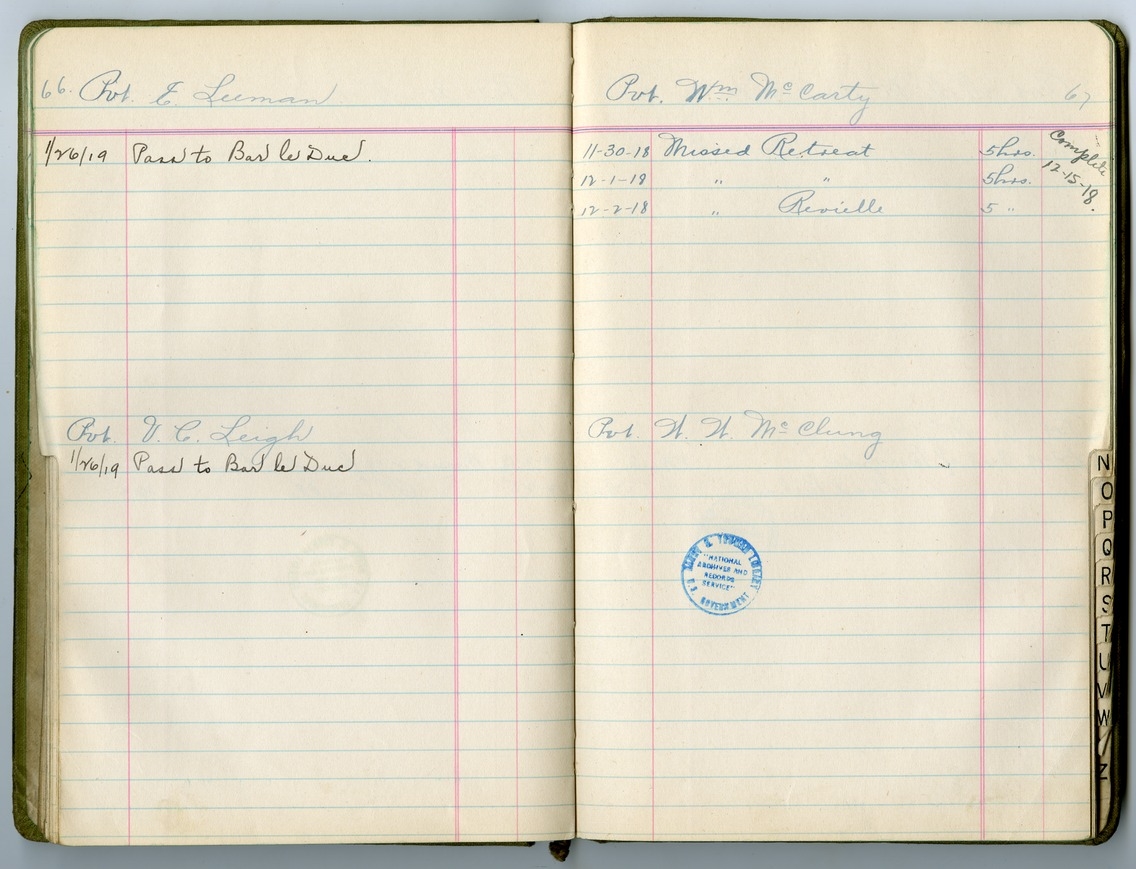 66. Pvt. E. Leeman
1/26/19 Pass to Bar le Duc.
Pvt. V. C. Leigh
1/26/19 Pass to Bar le Duc
Pvt. Wm McCarty 67
11-30-18 Missed Retreat 5hrs. Complete
12-1-18 " " 5hrs. 12-15-18.
12-2-18 " Revielle 5 "
Pvt. W. W. McClung
HARRY S. TRUMAN LIBRARY
"NATIONAL
ARCHIVES AND
RECORDS
SERVICE"
U.S. GOVERNMENT
N
O
P
Q
R
S
T
U
V
W
Z